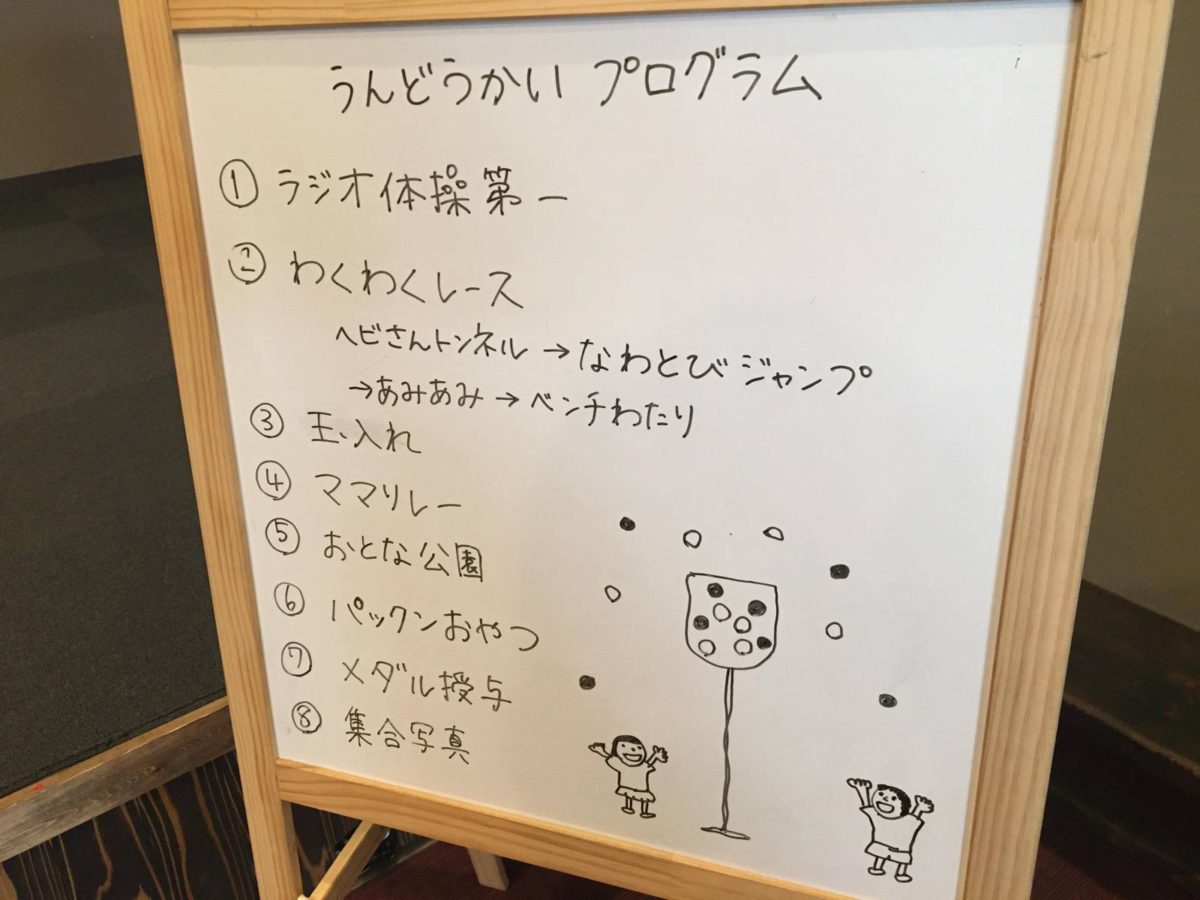 うんどうかい プログラム
① ラジオ体操第一
② わくわくレース
ヘビさんトンネル→なわとびジャンプ
→あみあみ→ベンチわたり
③ 玉入れ
④ ママリレー
⑤ おとな公園
⑥ パックンおやつ
⑦ メダル授与
⑧ 集合写真